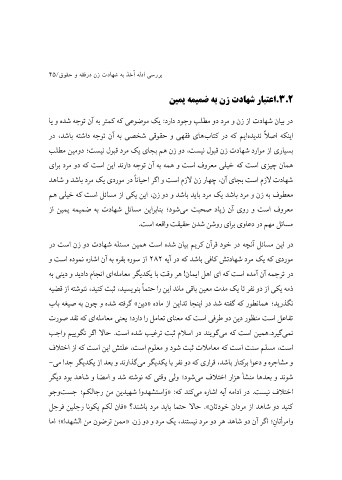 بررسی ادله أخذ به شهادت زن درفقه و حقوق/۴۵
۳.۲.اعتبار شهادت زن به ضمیمه یمین
در بیان شهادت از زن و مرد دو مطلب وجود دارد: یک موضوعی که کمتر به آن توجه شده و یا
اینکه اصلاً ندیده‌ایم که در کتاب‌های فقهی و حقوقی شخصی به آن توجه داشته باشد، در
بسیاری از موارد شهادت زن قبول نیست، دو زن هم بجای یک مرد قبول نیست؛ دومین مطلب
همان چیزی است که خیلی معروف است و همه به آن توجه دارند این است که دو مرد برای
شهادت لازم است بجای آن، چهار زن لازم است و اگر احیاناً در موردی یک مرد باشد و شاهد
معطوف به زن و مرد باشد یک مرد باید باشد و دو زن، این یکی از مسائل است که خیلی هم
معروف است و روی آن زیاد صحبت می‌شود؛ بنابراین مسائل شهادت به ضمیمه یمین از
مسائل مهم در دعاوی برای روشن شدن حقیقت واقعه است.
در این مسائل آنچه در خود قرآن کریم بیان شده است همین مسئله شهادت دو زن است در
موردی که یک مرد شهادتش کافی باشد که در آیه ۲۸۲ از سوره بقره به آن اشاره نموده است و
در ترجمه آن آمده است که ای اهل ایمان! هر وقت با یکدیگر معامله‌ای انجام دادید و دینی به
ذمه یکی از دو نفر تا یک مدت معین باقی ماند این را حتماً بنویسید، ثبت کنید، ننوشته از قضیه
نگذرید؛ همانطور که گفته شد در اینجا تداین از ماده «دین» گرفته شده و چون به صیغه باب
تفاعل است منظور دین دو طرفی است که معنای تعامل را دارد؛ یعنی معامله‌ای که نقد صورت
نمی‌گیرد.همین است که می‌گویند در اسلام ثبت ترغیب شده است. حالا اگر نگوییم واجب
است، مسلم سنت است که معاملات ثبت شود و معلوم است، علتش این است که از اختلاف
و مشاجره و دعوا برکنار باشد، قراری که دو نفر با یکدیگر می‌گذارند و بعد از یکدیگر جدا می-
شوند و بعدها منشأ هزار اختلاف می‌شود؛ ولی وقتی که نوشته شد و امضا و شاهد بود دیگر
اختلاف نیست. در ادامه آیه اشاره می‌کند که: «وَاستشهدوا شهیدین من رجالکم؛ جست‌وجو
کنید دو شاهد از مردان خودتان». حالا حتما باید مرد باشند؟ «فان لکم یکونا رجلین فرجل
وامرأتان؛ اگر آن دو شاهد هر دو مرد نیستند، یک مرد و دو زن. «ممن ترضون من الشهدا»؛ اما